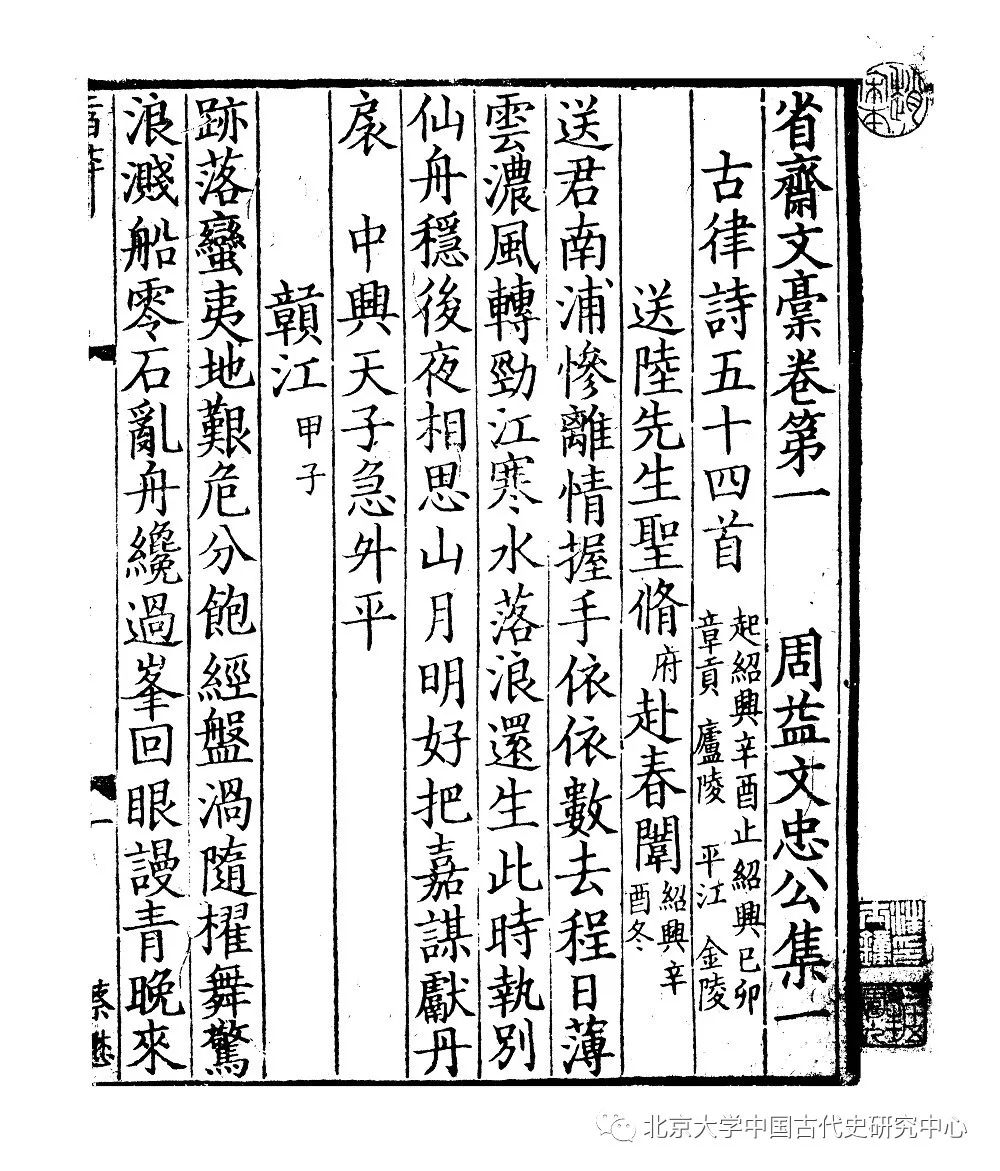 省齋文藁卷第一 周益文忠公集一
古律詩五十四首 起紹興辛酉止紹興已卯 章貢 廬陵 平江 金陵
送陸先生聖脩府赴春闈 紹興辛酉冬
送君南浦慘離情握手依依數去程日薄
雲濃風轉勁江寒水落浪還生此時執別
仙舟穩後夜相思山月明好把嘉謀獻丹
扆 中興天子急外平
贛江 甲子
跡落蠻夷地艱危分飽經盤渦隨櫂舞驚
浪濺船零石亂舟纔過峯回眼謾青晚來
蔡懋
北京大学中国古代史研究中心